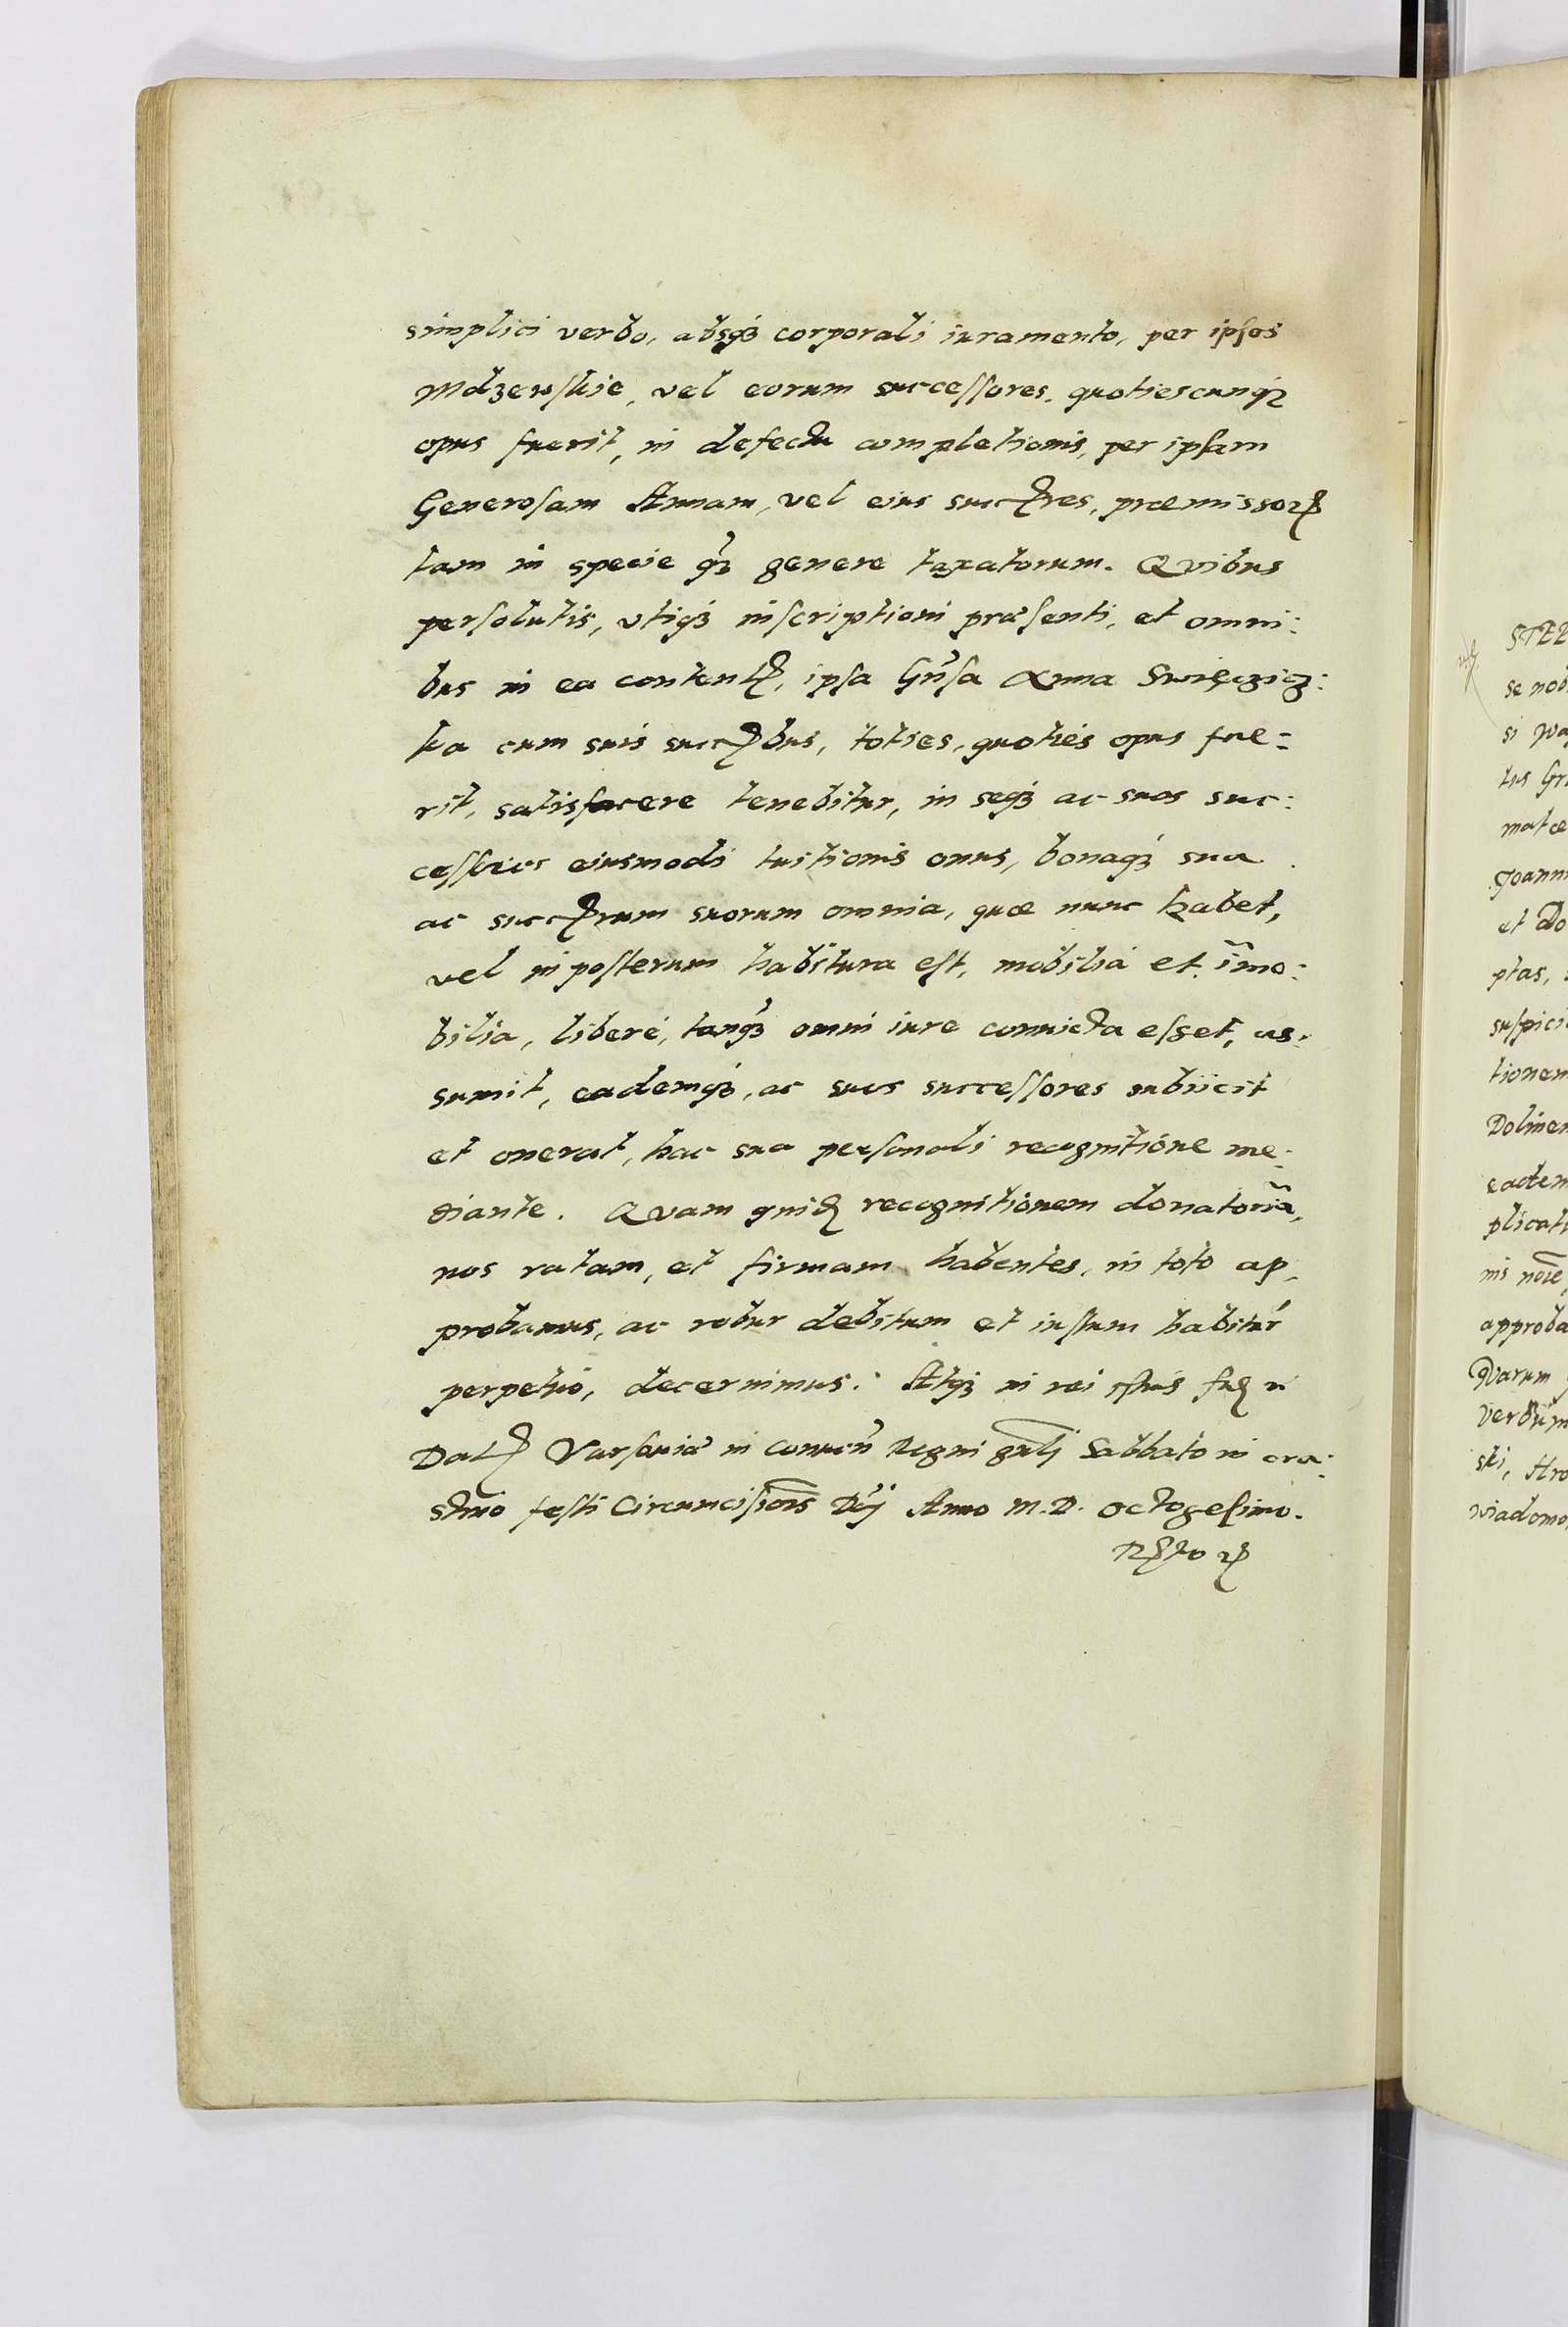 simplici verbo, absqꝫ corporali iuramento, per ipsos
Mdzewskie, vel eorum successores, quotiescunqꝫ
opus fuerit, in defectu completionis, per ipsam
Generosam Annam, vel eius succꝭres, præmissorꝝ
tam in specie qꝫ genere taxatorum. Quibus
persolutis, vtiqꝫ inscriptioni præsenti, et omni:
bus in ea contentꝭ, ipsa Gñsa Anna Swięczicz:
ka cum suis succꝭbus, toties, quoties opus fue:
rit, satisfacere tenebitur, in seqꝫ ac suos suc:
cessores eiusmodi tuitionis onus, bonaqꝫ sua
ac succꝭrum suorum omnia, quæ nunc habet,
vel in posterum habitura est, mobilia et im̃o:
bilia, liberé, tanqꝫ omni iure conuicta esset, as:
sumit, eademqꝫ, ac suos successores subiicit
et onerat, hac sua personali recognitione me:
diante. Quam quidꝭ recognitionem donatoriã,
nos ratam, et firmam habentes, in toto ap:
probamus, ac robur debitum et iustum habitur
perpetuò, decernimus. Atqꝫ in rei
Datꝭ Varsouiæ in conuen Regni gnlj Sabbato in cra:
stino festi Circumcisiois Dnj Anno M.D. octogesimo.
STE
se nob
si
tus
matæ
Joann
et Do
ptas,
suspici
tionem
Dolinen
eadem
plicat
nis noie
approba
Quarum
verbum
ski, Hro
wiadomo